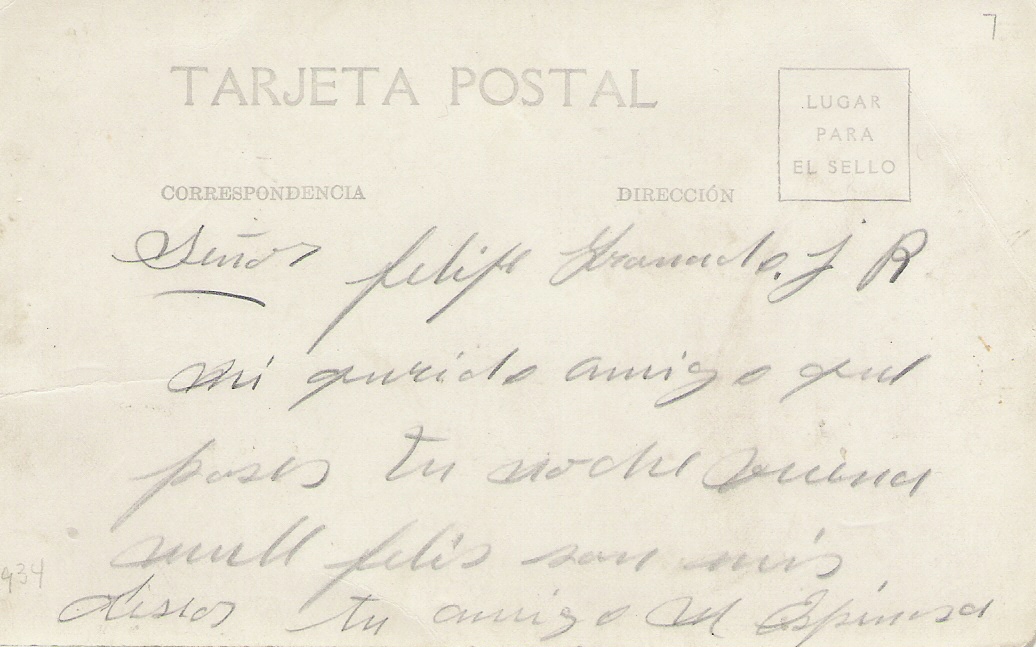 7
TARJETA POSTAL
LUGAR
PARA
EL SELLO
CORRESPONDENCIA
DIRECCIÓN
Señor felipe Granado. J R
mi querido amigo que
pases tu noche buena
felis son mis
934
deseos tu amigo Espinosa